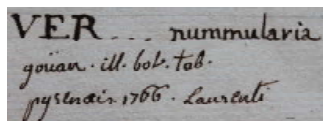 VER... nummularia
goüan. ill. bot. tab.
pyrenais. 1766. Laurenti